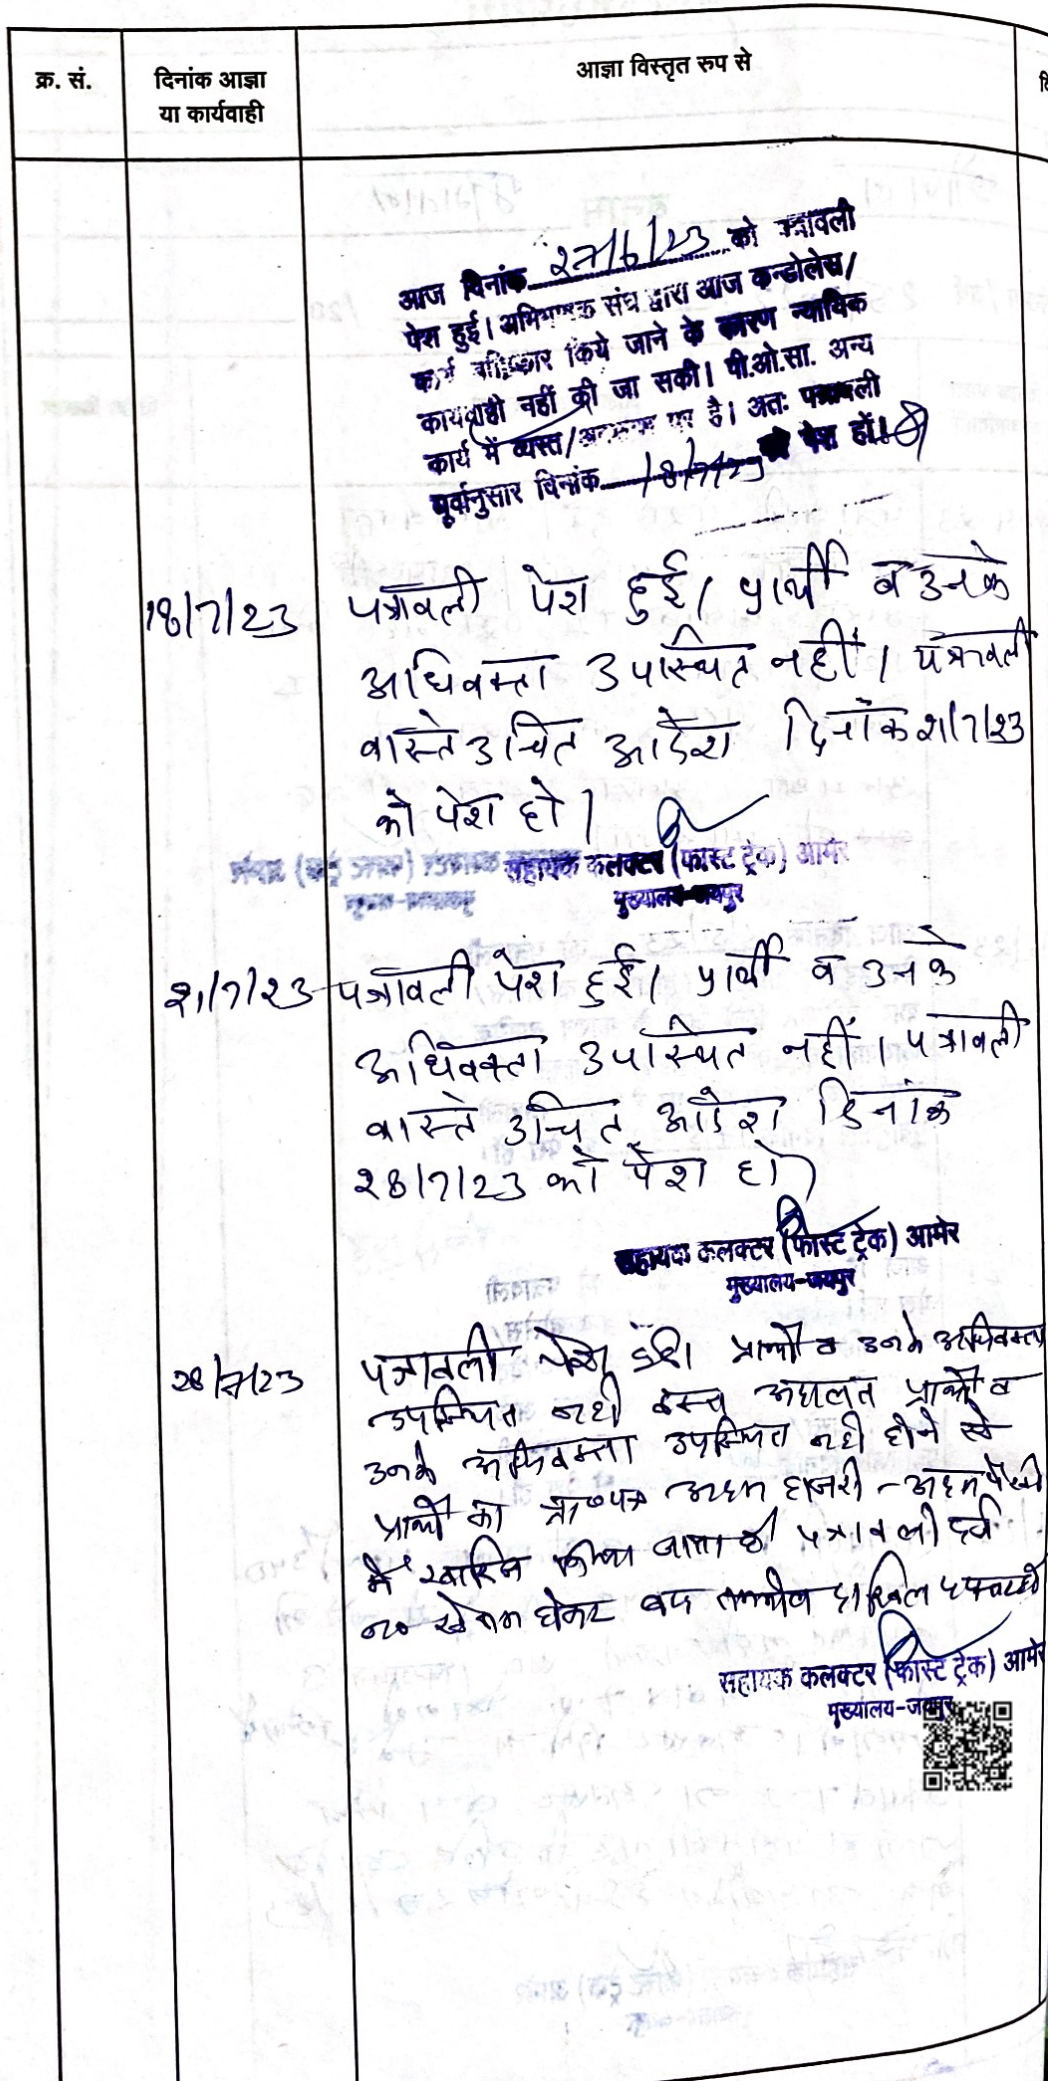 क्र. सं.
दिनांक आज्ञा
या कार्यवाही
आज्ञा विस्तृत रुप से
आज दिनांक 27/6/23 को पत्रावली
पेश हुई। अभिभाषक संघ द्वारा आज कन्डोलेंस/
कार्य बहिष्कार किये जाने के कारण न्यायिक
कार्यवाही नहीं की जा सकी। पी.ओ.सा. अन्य
कार्य में व्यस्त/अवकाश पर है। अतः पत्रावली
पूर्वानुसार दिनांक 18/7/23 को पेश हों।
18/7/23 पत्रावली पेश हुई। प्रार्थी व उनके
अधिवक्ता उपस्थित नहीं। पत्रावली
वास्ते उचित आदेश दिनांक 21/7/23
को पेश हो।
सहायक कलक्टर (फास्ट ट्रेक) आमेर
मुख्यालय-जयपुर
21/7/23 पत्रावली पेश हुई। प्रार्थी व उनके
अधिवक्ता उपस्थित नहीं। पत्रावली
वास्ते उचित आदेश दिनांक
28/7/23 को पेश हो
सहायक कलक्टर (फास्ट ट्रेक) आमेर
मुख्यालय-जयपुर
28/7/23 पत्रावली पेश हुई। प्रार्थी व उनके अधिवक्ता
उपस्थित नही प्रार्थी व
उनके अधिवक्ता उपस्थित नही होने से
प्रार्थी का प्रा०पत्र अदम हाजरी - अदम पैरवी
में खारिज किया जाता है। पत्रावली दर्ज
न० से कम होकर बाद तकमील दाखिल दफ्तर हो
सहायक कलक्टर (फास्ट ट्रेक) आमेर
मुख्यालय-जयपुर